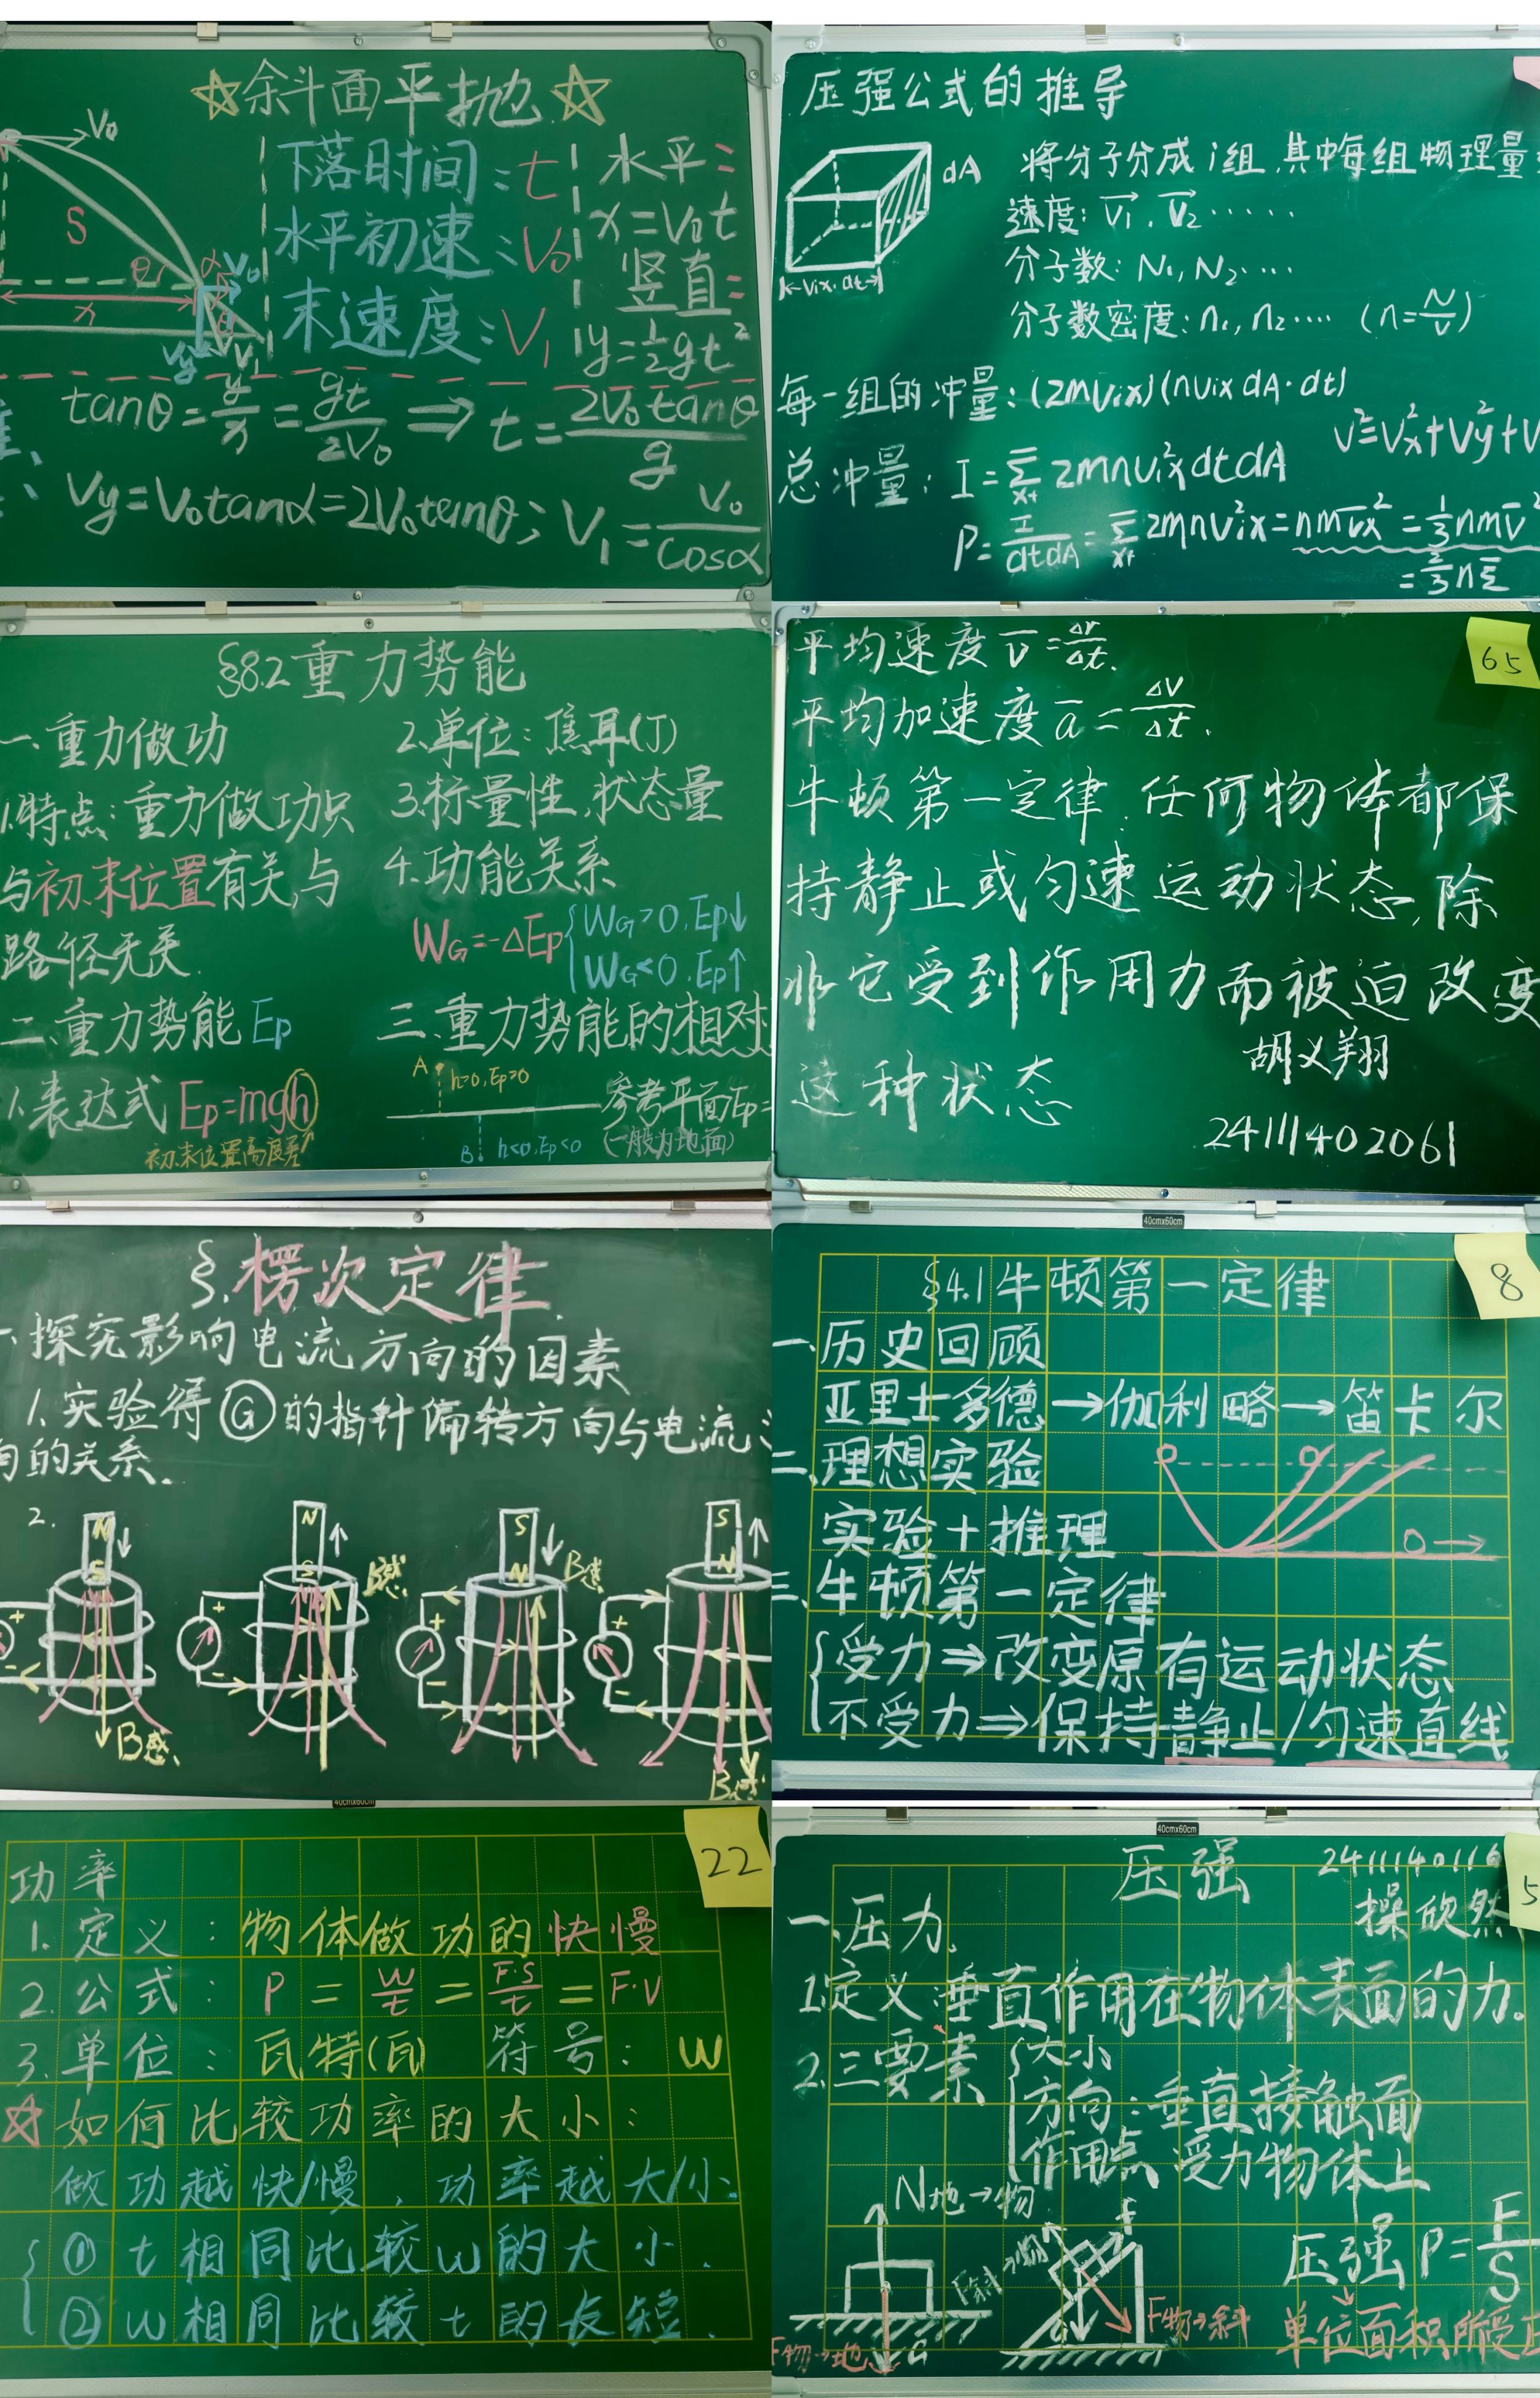 ☆余斜面平抛☆
V₀
S
θ
α
V₀
x
Vy
V₁
下落时间:t
水平初速:V₀
末速度:V₁
水平:
x=V₀t
竖直:
y=½gt²
tanθ=y/x=gt/2V₀⇒t=2V₀tanθ/g
Vy=V₀tanα=2V₀tanθ; V₁=V₀/cosα
压强公式的推导
dA
|←Vix·dt→|
将分子分成i组,其中每组物理量:
速度: V₁, V₂ ······
分子数: N₁, N₂ ····
分子数密度: n₁, n₂ ···· (n=N/V)
每一组的冲量: (2mVix)(nVix dA·dt)
V²=Vx²+Vy²+V
总冲量: I=Σ 2mnVi²x dtdA
P=I/dtdA=Σ2mnV²ix=nmV̅x²=⅓nmV̅²
=⅔nε̅
§8.2重力势能
一.重力做功
1.特点:重力做功只
与初.末位置有关,与
路径无关.
二.重力势能Ep
1.表达式 Ep=mgh
初.末位置高度差
2.单位:焦耳(J)
3.标量性,状态量
4.功能关系
WG=-ΔEp{WG>0,Ep↓
WG<0,Ep↑
三.重力势能的相对
A h>0,Ep>0
参考平面Ep=
(一般为地面)
B h<0,Ep<0
平均速度 v̅=Δr/Δt.
65
平均加速度 a̅=ΔV/Δt.
牛顿第一定律:任何物体都保
持静止或匀速运动状态,除
非它受到作用力而被迫改变
这种状态
胡义翔
24111402061
§.楞次定律
一.探究影响电流方向的因素
1.实验得Ⓖ的指针偏转方向与电流
向的关系.
2.
N
S
B感
+
-
N
S
B感
+
-
S
N
B感
+
-
S
N
B感
+
-
40cmx60cm
8
§4.1牛顿第一定律
一.历史回顾
亚里士多德→伽利略→笛卡尔
二.理想实验
实验+推理
三.牛顿第一定律
{受力⇒改变原有运动状态
不受力⇒保持静止/匀速直线
40cmx60cm
22
功率
1.定义:物体做功的快慢
2.公式:P=W/t=F·S/t=F·V
3.单位:瓦特(瓦) 符号:W
☆如何比较功率的大小:
做功越快/慢,功率越大/小.
{①t相同比较W的大小.
②W相同比较t的长短.
40cmx60cm
压强
2411140116
操欣然
5
一.压力.
1.定义:垂直作用在物体表面的力.
2.三要素{大小
方向:垂直接触面
作用点:受力物体上
N地→物
F物→地
G
F斜→物
f
G
F物→斜
压强 P=F/S
单位面积所受